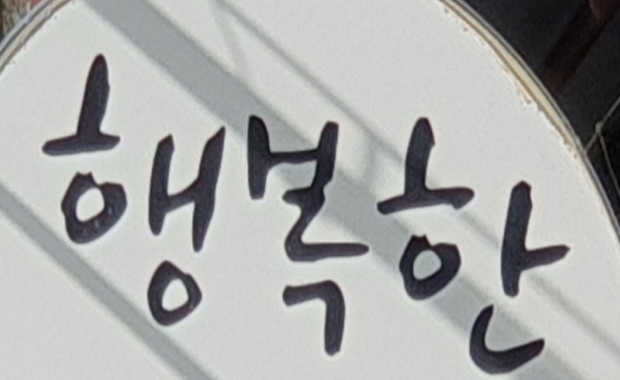 행복한